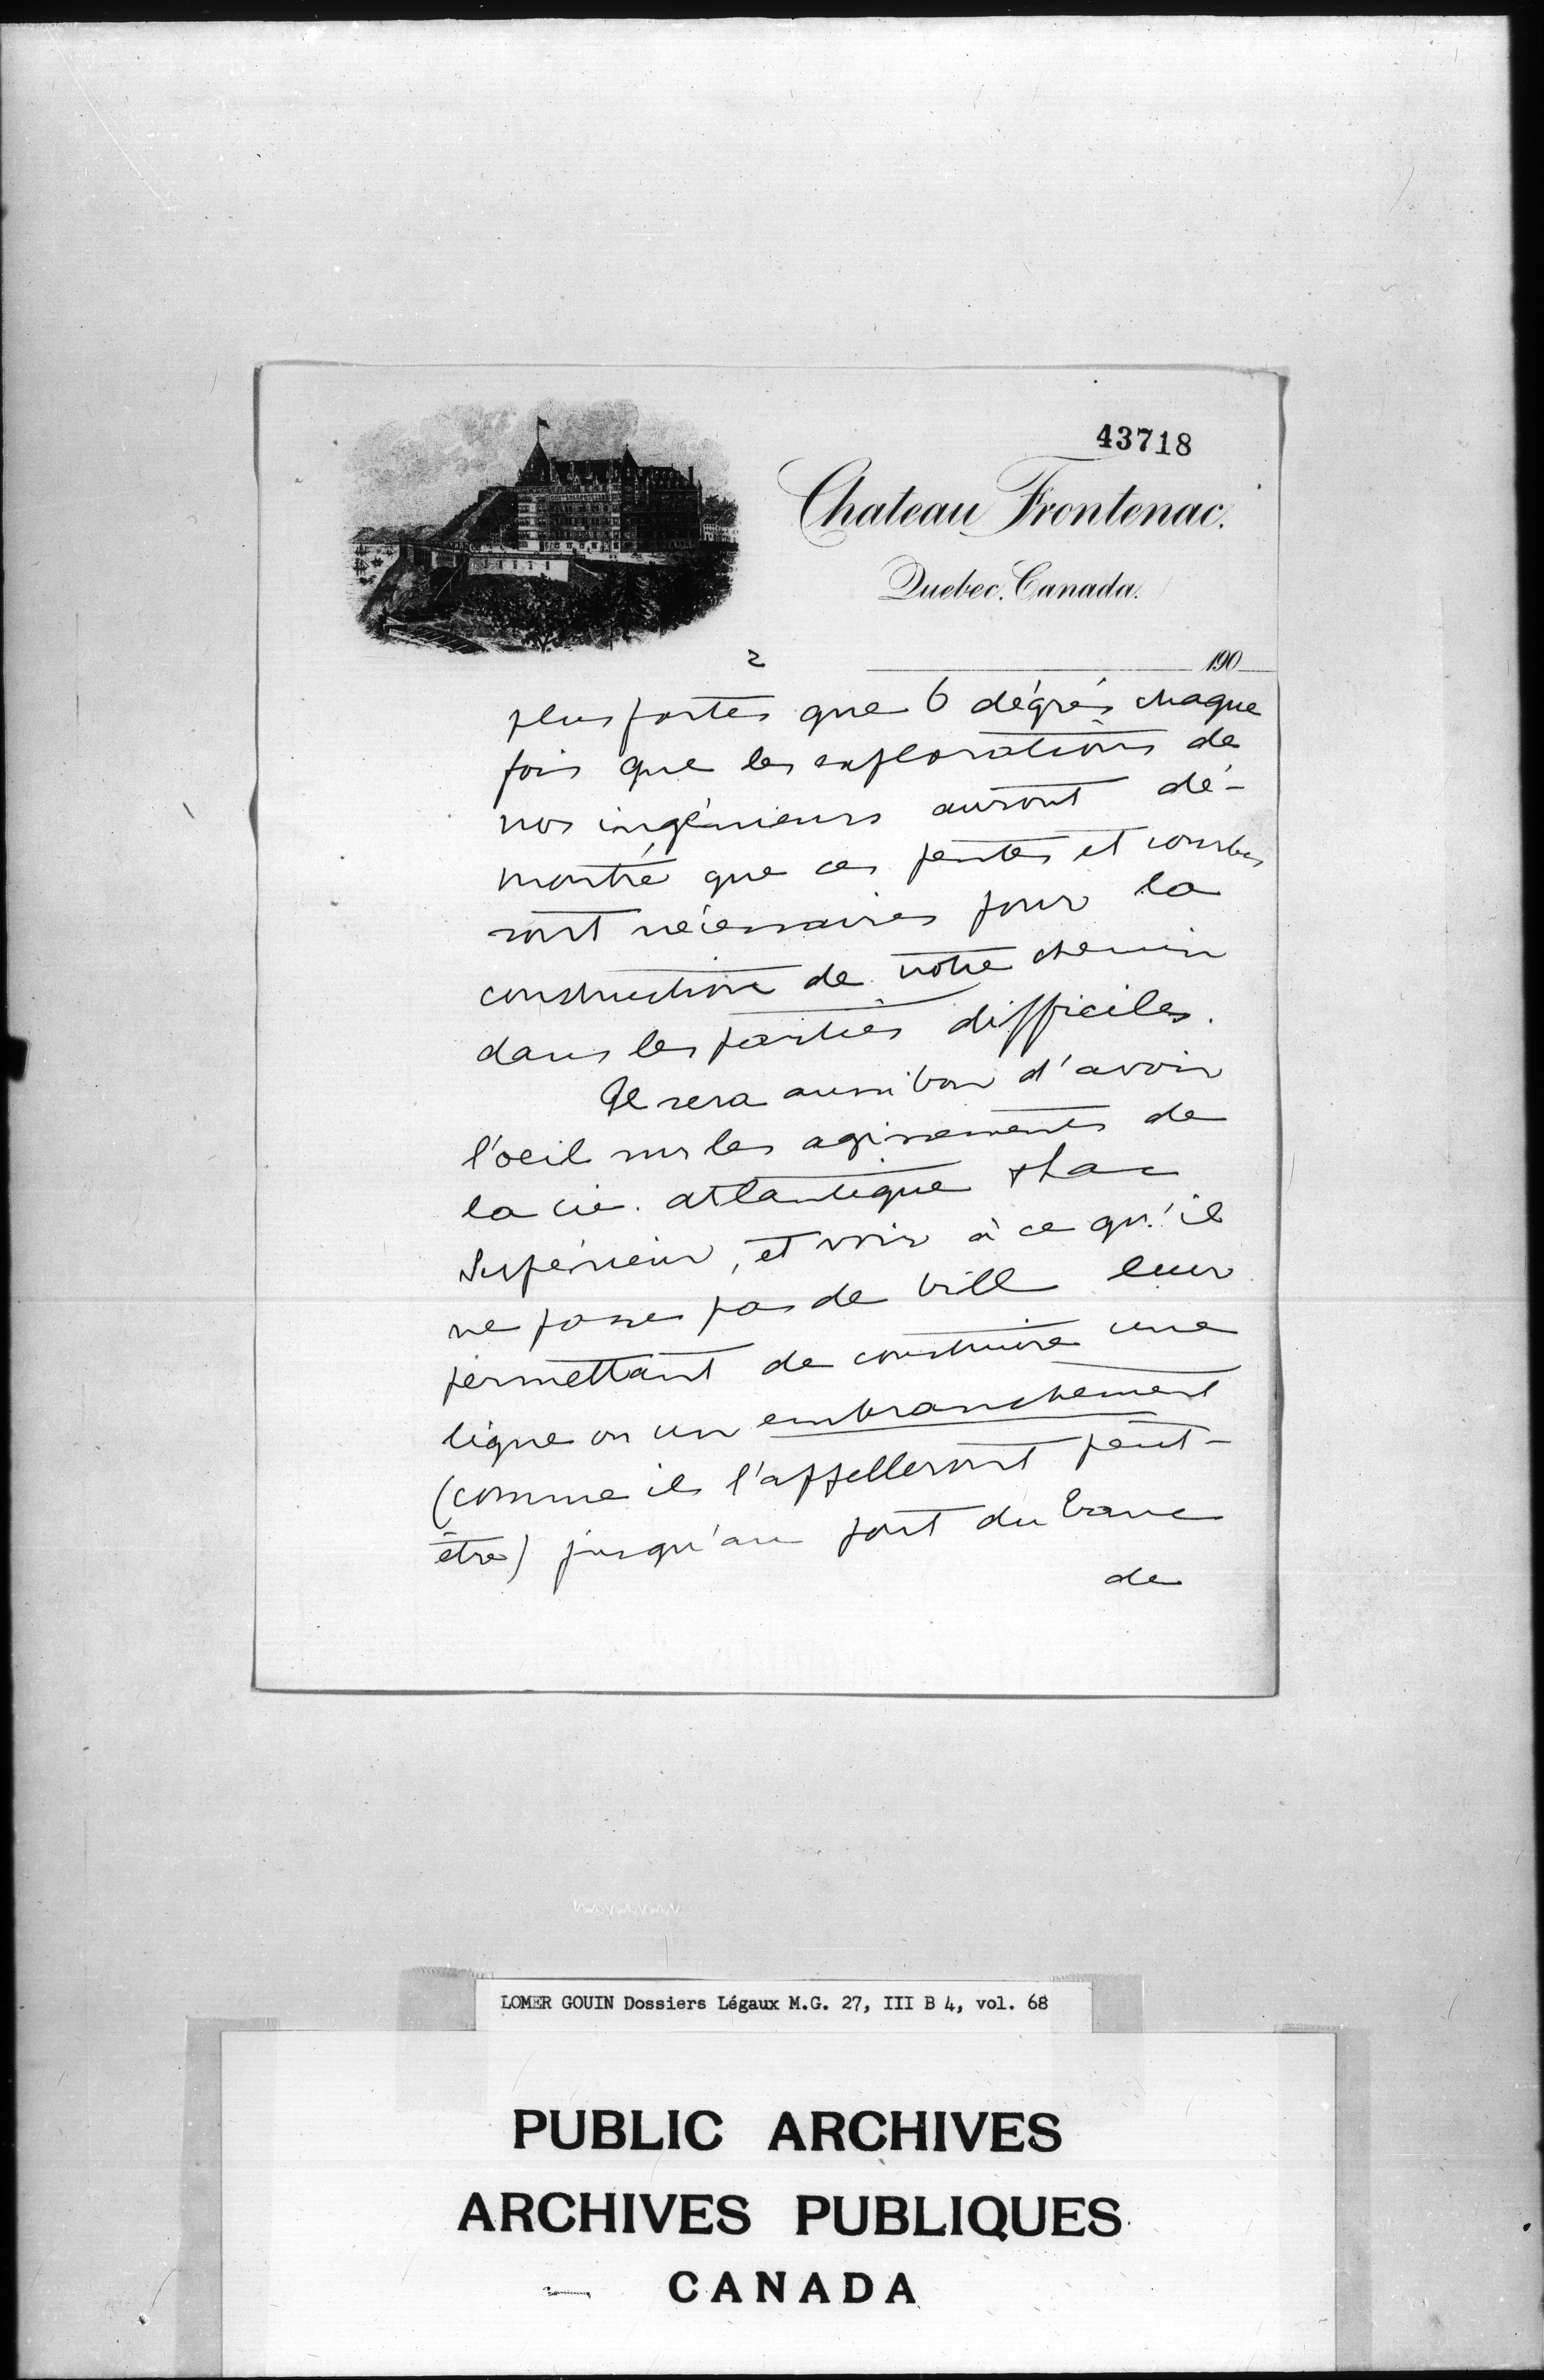 43718
Chateau Frontenac.
Quebec. Canada.
2
190
plus fortes que 6 dégrés chaque
fois que les explorations de
nos ingénieurs auront dé-
montré que ces pentes et courbes
sont nécessaires pour la
construction de notre chemin
dans les parties difficiles.
Il sera aussi bon d'avoir
l'oeil sur les agissements de
la cie. atlantique & Lac
Supérieur, et voir à ce qu'il
ne passe pas de bill leur
permettant de construire une
ligne ou un embranchement
(comme ils l'appelleront peut-
être) jusqu'au port du banc
de
LOMER GOUIN Dossiers Légaux M.G. 27, III B 4, vol. 68
PUBLIC ARCHIVES
ARCHIVES PUBLIQUES
CANADA